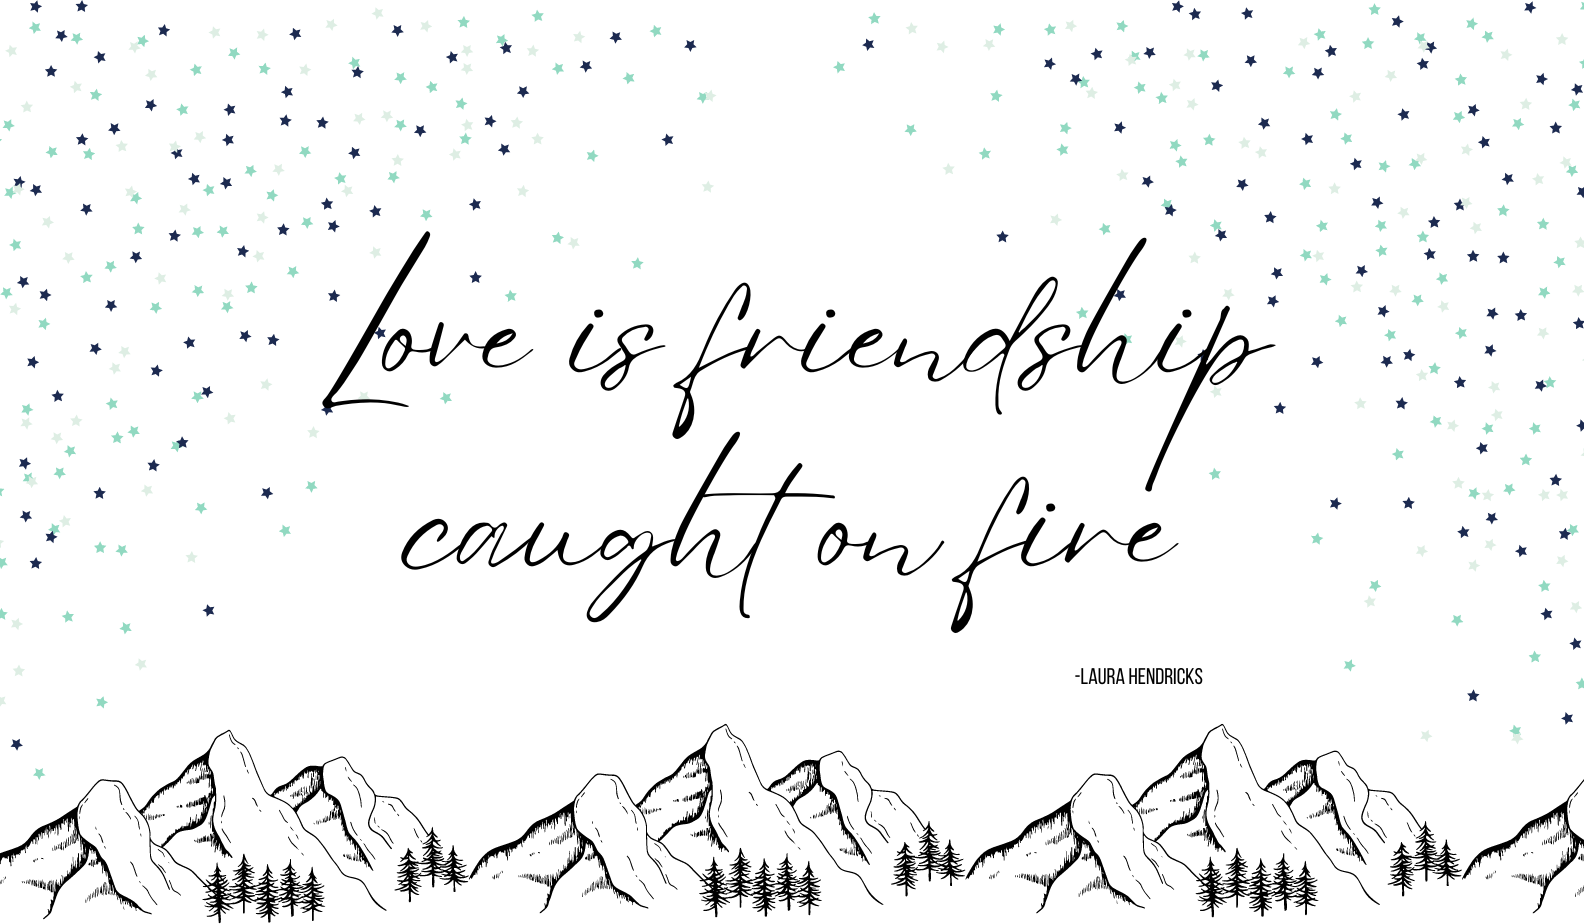 Love is friendship
caught on fire
-LAURA HENDRICKS